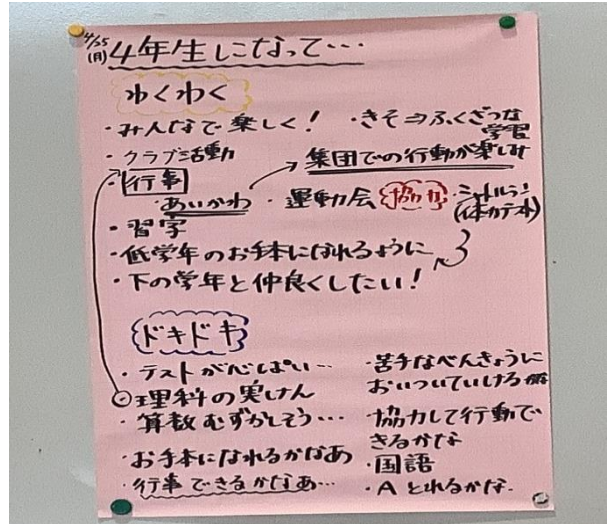 4/25
(月)
4年生になって…
わくわく
・みんなで楽しく！
・きそ⇒ふくざつな
学習
・クラブ活動
→集団での行動が楽しみ
・行事
・あいかわ
・運動会
協力
・シャトルラン
(体力テスト)
・習字
・低学年のお手本になれるように
・下の学年と仲良くしたい！
ドキドキ
・テストが心ぱい…
・理科の実けん
・算数むずかしそう…
・お手本になれるかなあ
・行事できるかなあ…
・苦手なべんきょうに
おいついていけるか
・協力して行動で
きるかな
・国語
・Aとれるかな